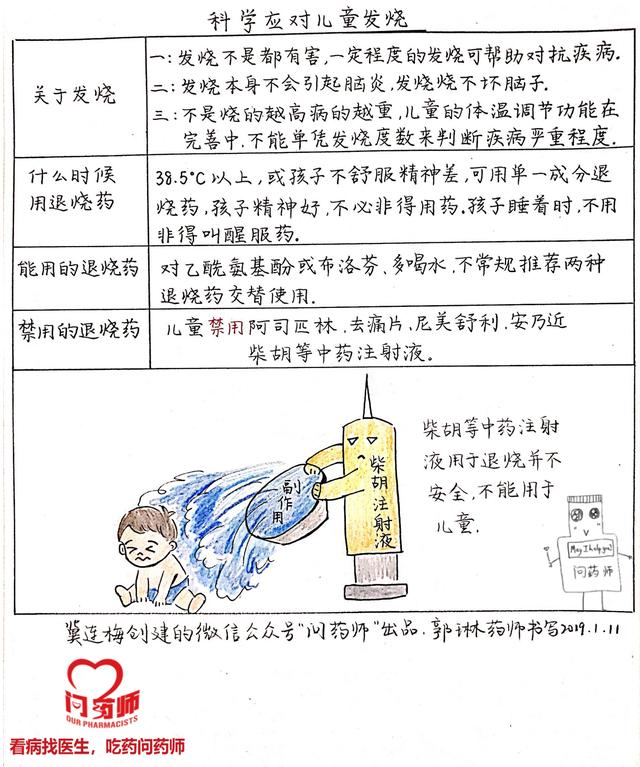 科学应对儿童发烧
关于发烧
一:发烧不是都有害,一定程度的发烧可帮助对抗疾病.
二:发烧本身不会引起脑炎,发烧烧不坏脑子.
三:不是烧的越高病的越重,儿童的体温调节功能在
完善中.不能单凭发烧度数来判断疾病严重程度.
什么时候
用退烧药
38.5°C以上,或孩子不舒服精神差,可用单一成分退
烧药,孩子精神好,不必非得用药.孩子睡着时,不用
非得叫醒服药。
能用的退烧药
对乙酰氨基酚或布洛芬、多喝水.不常规推荐两种
退烧药交替使用.
禁用的退烧药
儿童禁用阿司匹林.去痛片、尼美舒利.安乃近
柴胡等中药注射液。
副作用
柴胡注射液
柴胡等中药注射
液用于退烧并不
安全,不能用于
儿童.
May I help you?
问药师
冀连梅创建的微信公众号"问药师"出品.郭琳药师书写2019.1.11
问药师
OUR PHARMACISTS
看病找医生，吃药问药师